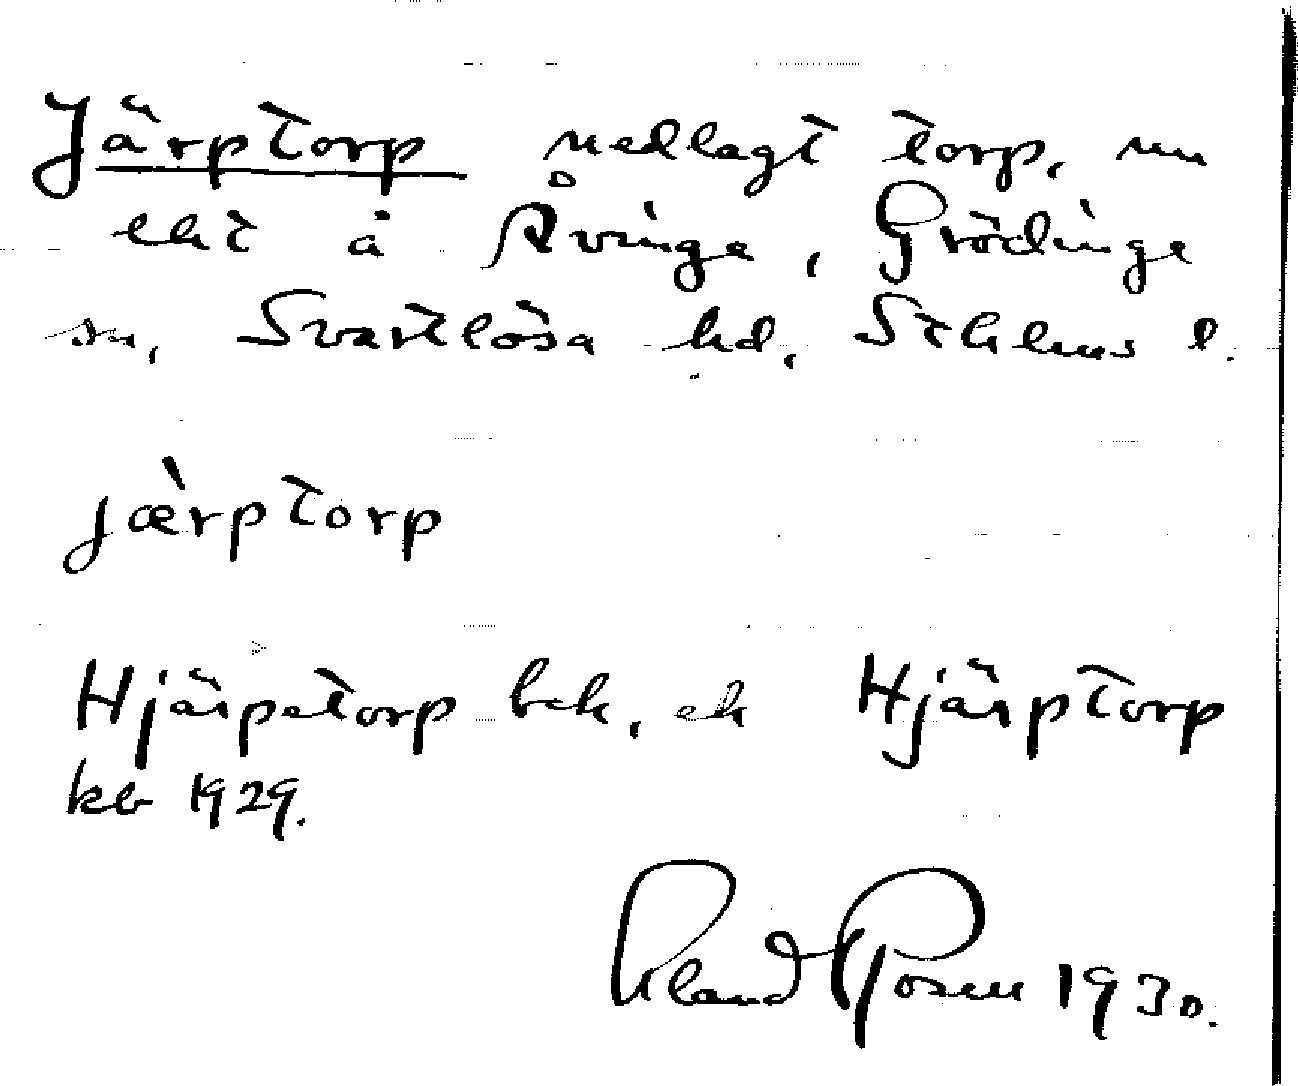 Järptorp nedlagt torp, nu
ekt å Åvinge, Grödinge
sn, Svartlösa hd, Sthlms l.
jæ̀rptorp
Hjärpetorp bek, ek Hjärptorp
kb 1929.
Rosén 1930.